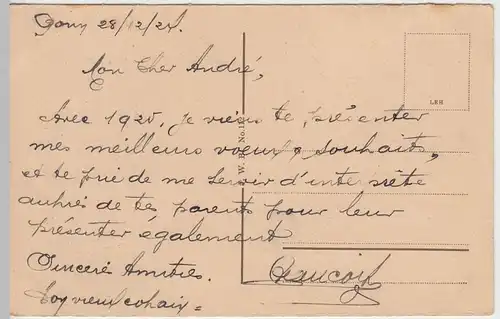 Gouy 28/12/24.
Mon Cher André,
LEH
Avec 1925, je viens te présenter
mes meilleurs voeux & souhaits,
et te prie de me servir d'interprète
auprès de tes parents pour leur
présenter également
Sincère Amitiés.
Ton vieux